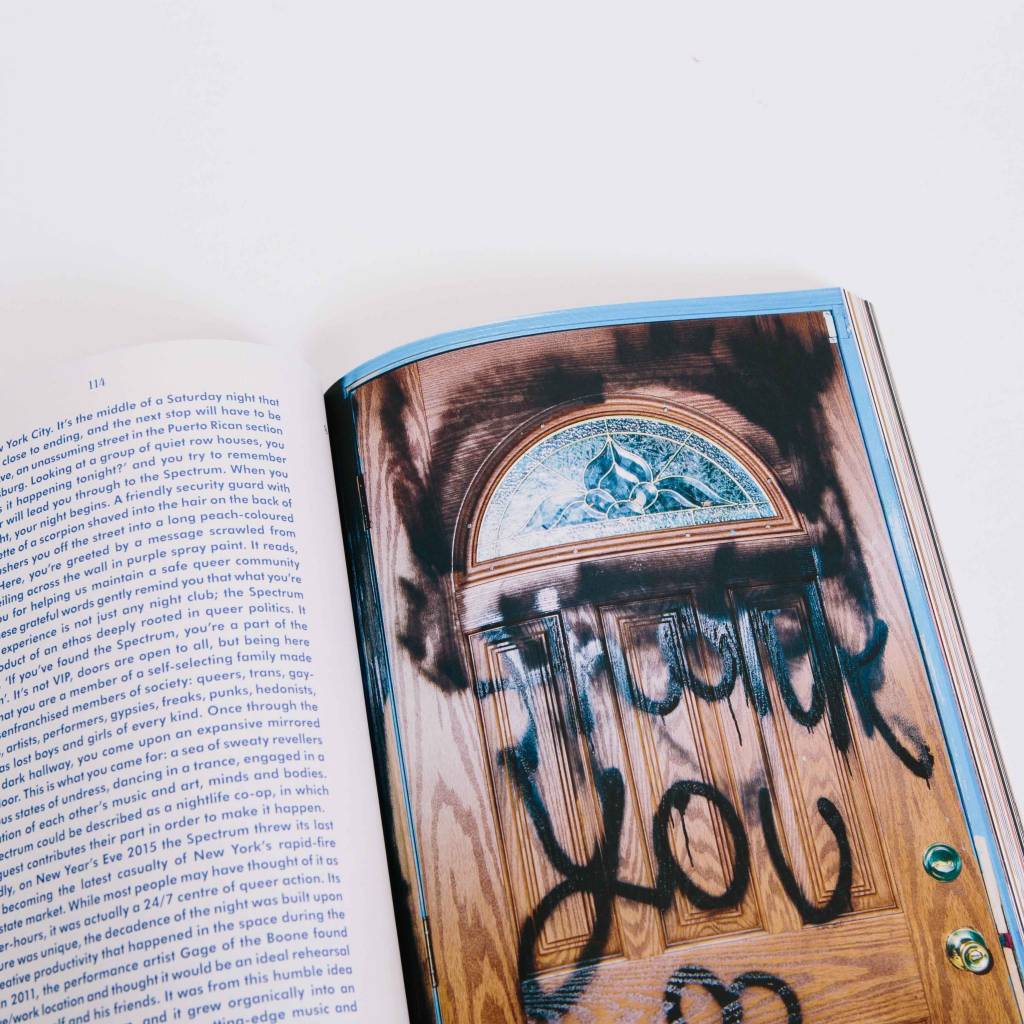 114
York City. It's the middle of a Saturday night that
close to ending, and the next stop will have to be
ve, an unassuming street in the Puerto Rican section
sburg. Looking at a group of quiet row houses, you
s it happening tonight?' and you try to remember
r will lead you through to the Spectrum. When you
ht, your night begins. A friendly security guard with
ette of a scorpion shaved into the hair on the back of
shers you off the street into a long peach-coloured
Here, you're greeted by a message scrawled from
eiling across the wall in purple spray paint. It reads,
ou for helping us maintain a safe queer community
ese grateful words gently remind you that what you're
experience is not just any night club; the Spectrum
oduct of an ethos deeply rooted in queer politics. It
'If you've found the Spectrum, you're a part of the
'. It's not VIP, doors are open to all, but being here
hat you are a member of a self-selecting family made
senfranchised members of society: queers, trans, gay-
, artists, performers, gypsies, freaks, punks, hedonists,
as lost boys and girls of every kind. Once through the
dark hallway, you come upon an expansive mirrored
loor. This is what you came for: a sea of sweaty revellers
ous states of undress, dancing in a trance, engaged in a
tion of each other's music and art, minds and bodies.
ectrum could be described as a nightlife co-op, in which
guest contributes their part in order to make it happen.
dly, on New Year's Eve 2015 the Spectrum threw its last
becoming the latest casualty of New York's rapid-fire
state market. While most people may have thought of it as
er-hours, it was actually a 24/7 centre of queer action. Its
ure was unique, the decadence of the night was built upon
eative productivity that happened in the space during the
n 2011, the performance artist Gage of the Boone found
e/work location and thought it would be an ideal rehearsal
elf and his friends. It was from this humble idea
and it grew organically into an
tting-edge music and
Thank
you